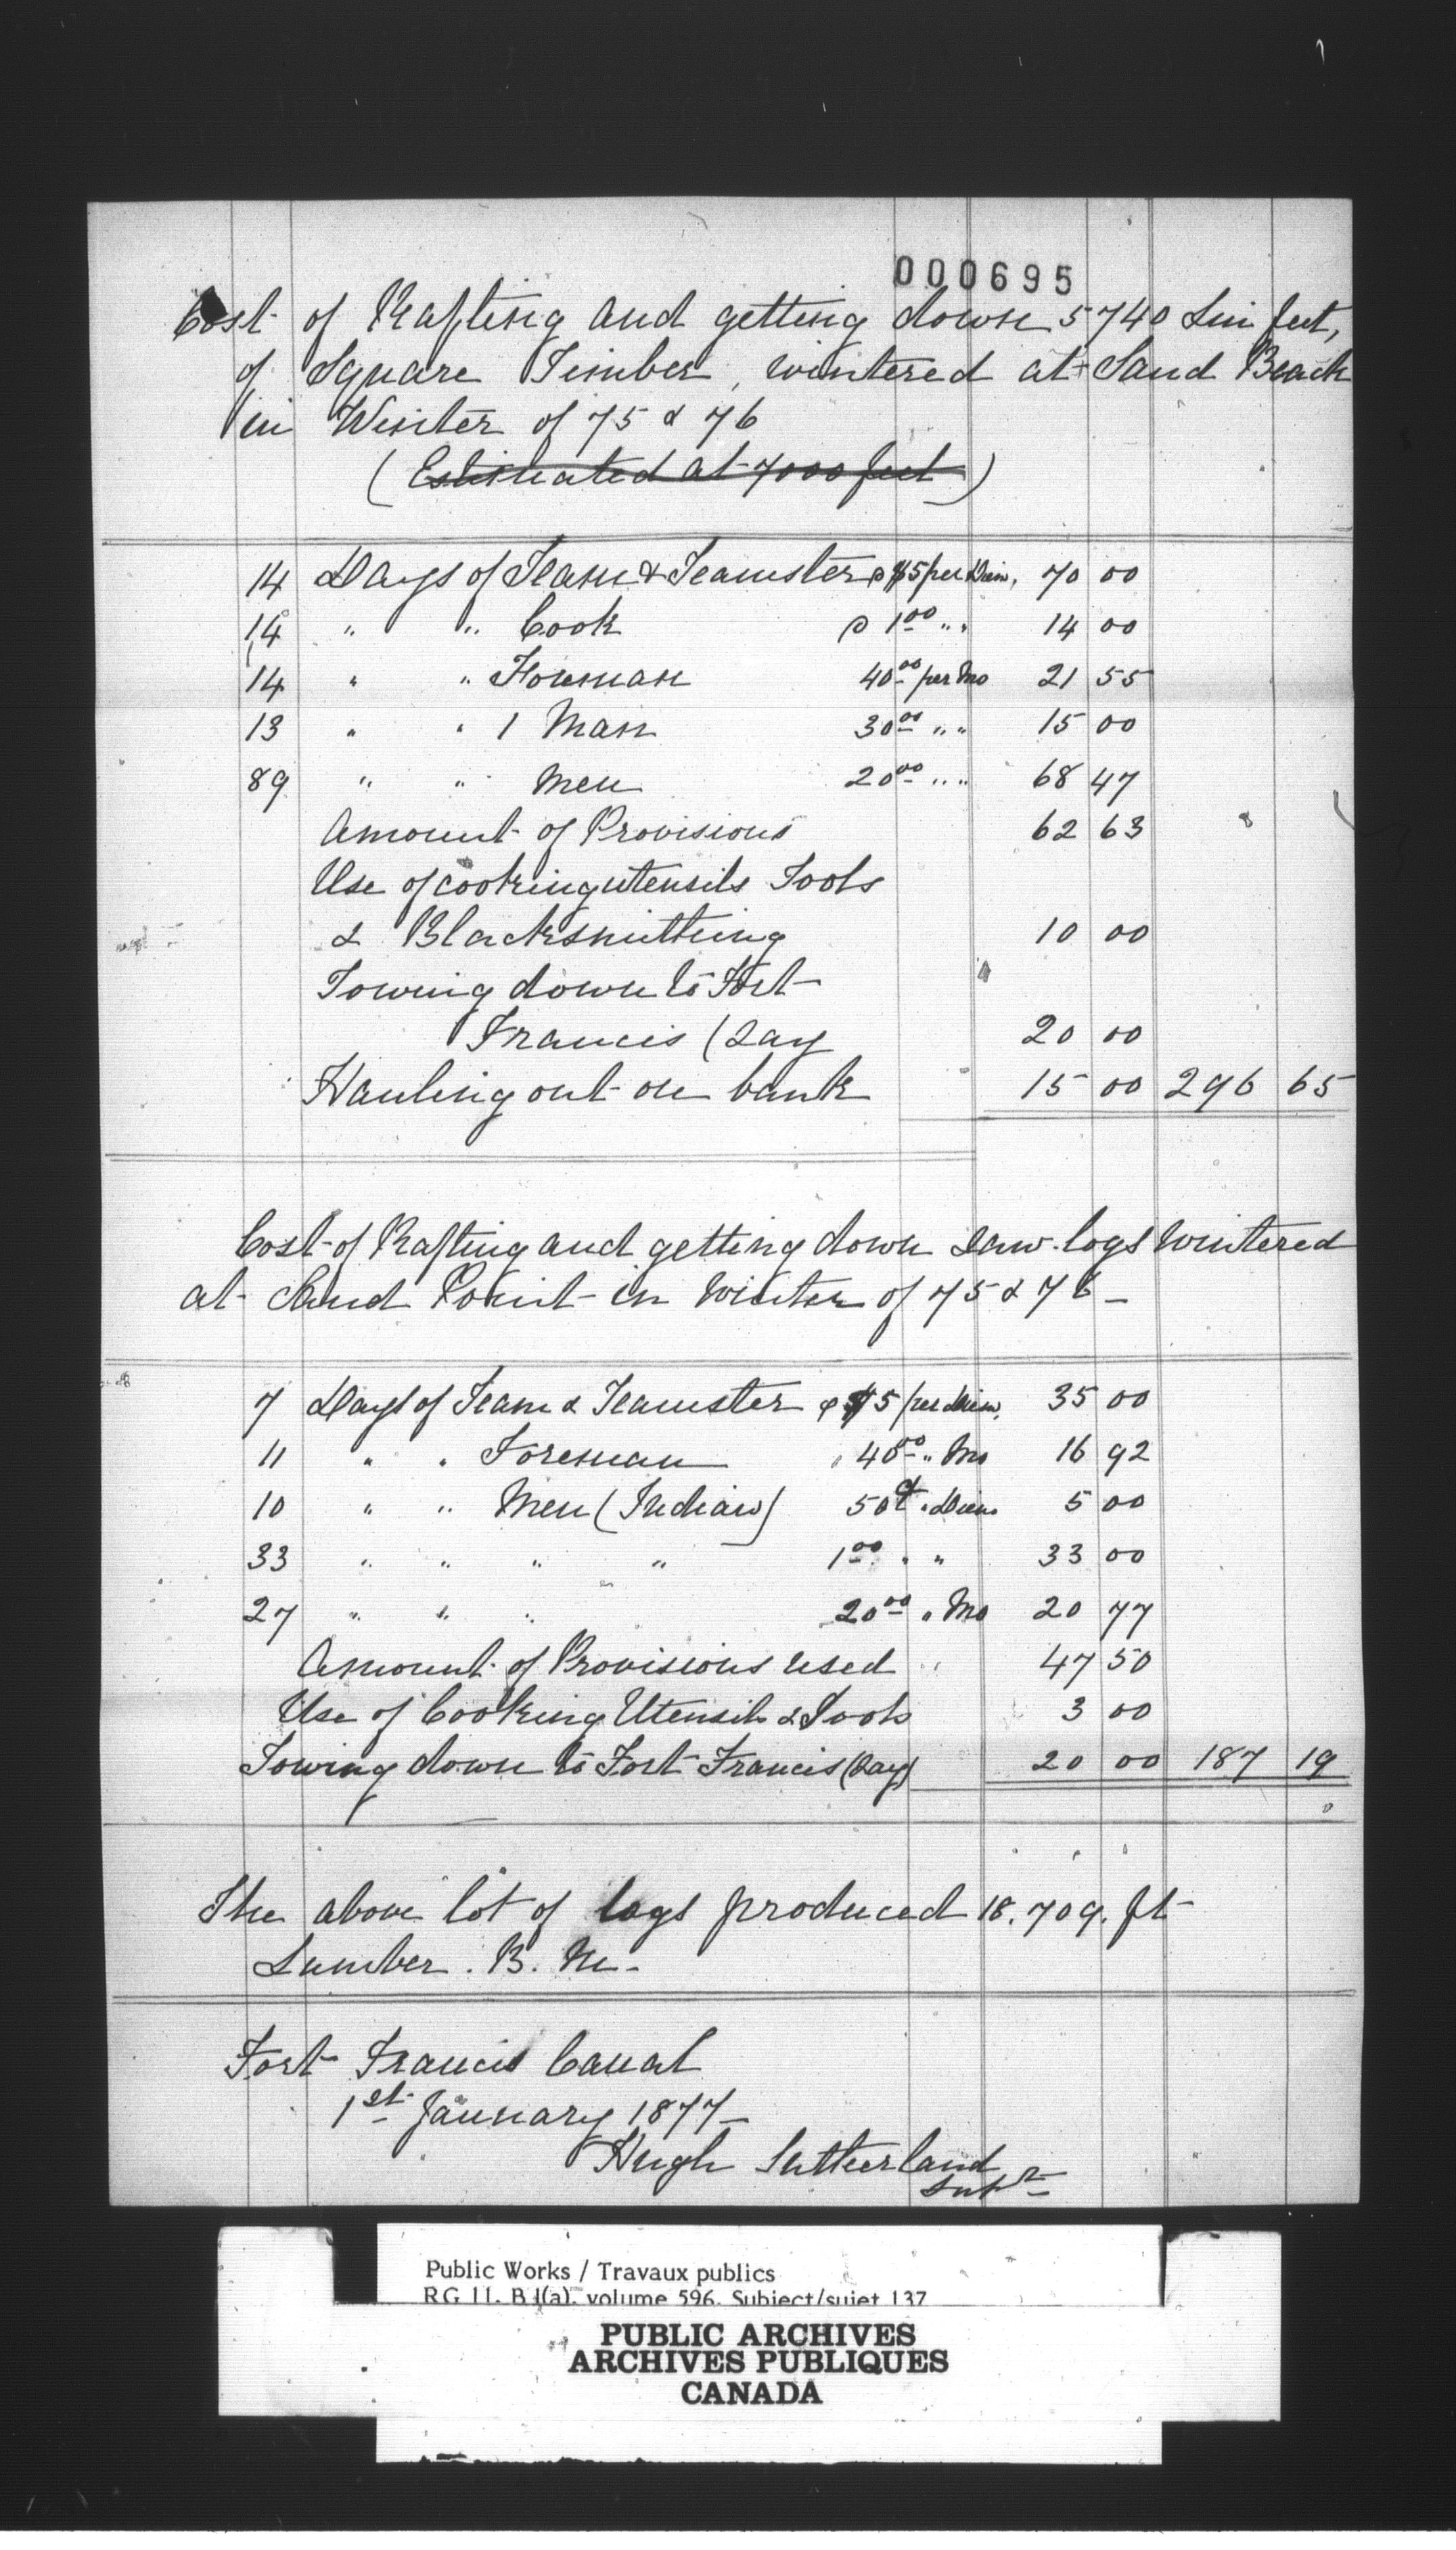 000695
Cost of Rafting and getting down 5740 Lin feet,
of Square Timber, wintered at Sand Beach
in Winter of 75 & 76
(Estimated at 7000 feet)
14 Days of Team & Teamster @ $5 per Diem, 70 00
14 " " Cook @ 1.00 " " 14 00
14 " " Foreman 40.00 per Mo 21 55
13 " " 1 Man 30.00 " " 15 00
89 " " Men 20.00 " " 68 47
Amount of Provisions 62 63
Use of cooking utensils Tools
& Blacksmithing 10 00
Towing down to Fort
Francis (Say 20 00
Hauling out on bank 15 00 296 65
Cost of Rafting and getting down saw logs wintered
at Sand Point in Winter of 75 & 76 -
7 Days of Team & Teamster @ $5 per Diem, 35 00
11 " " Foreman " 40.00 " Mo 16 92
10 " " Men (Indians) 50¢ " Diem 5 00
33 " " " " 1.00 " " 33 00
27 " " " 20.00 " Mo 20 77
Amount of Provisions used " 47 50
Use of Cooking Utensils & Tools 3 00
Towing down to Fort Francis (Say) 20 00 187 19
The above lot of logs produced 18.709. ft
Lumber. B. M.
Fort Francis Canal
1st January 1877
Hugh Sutherland
Supt
Public Works / Travaux publics
RG 11, B 1(a), volume 596, Subject/sujet 137
PUBLIC ARCHIVES
ARCHIVES PUBLIQUES
CANADA